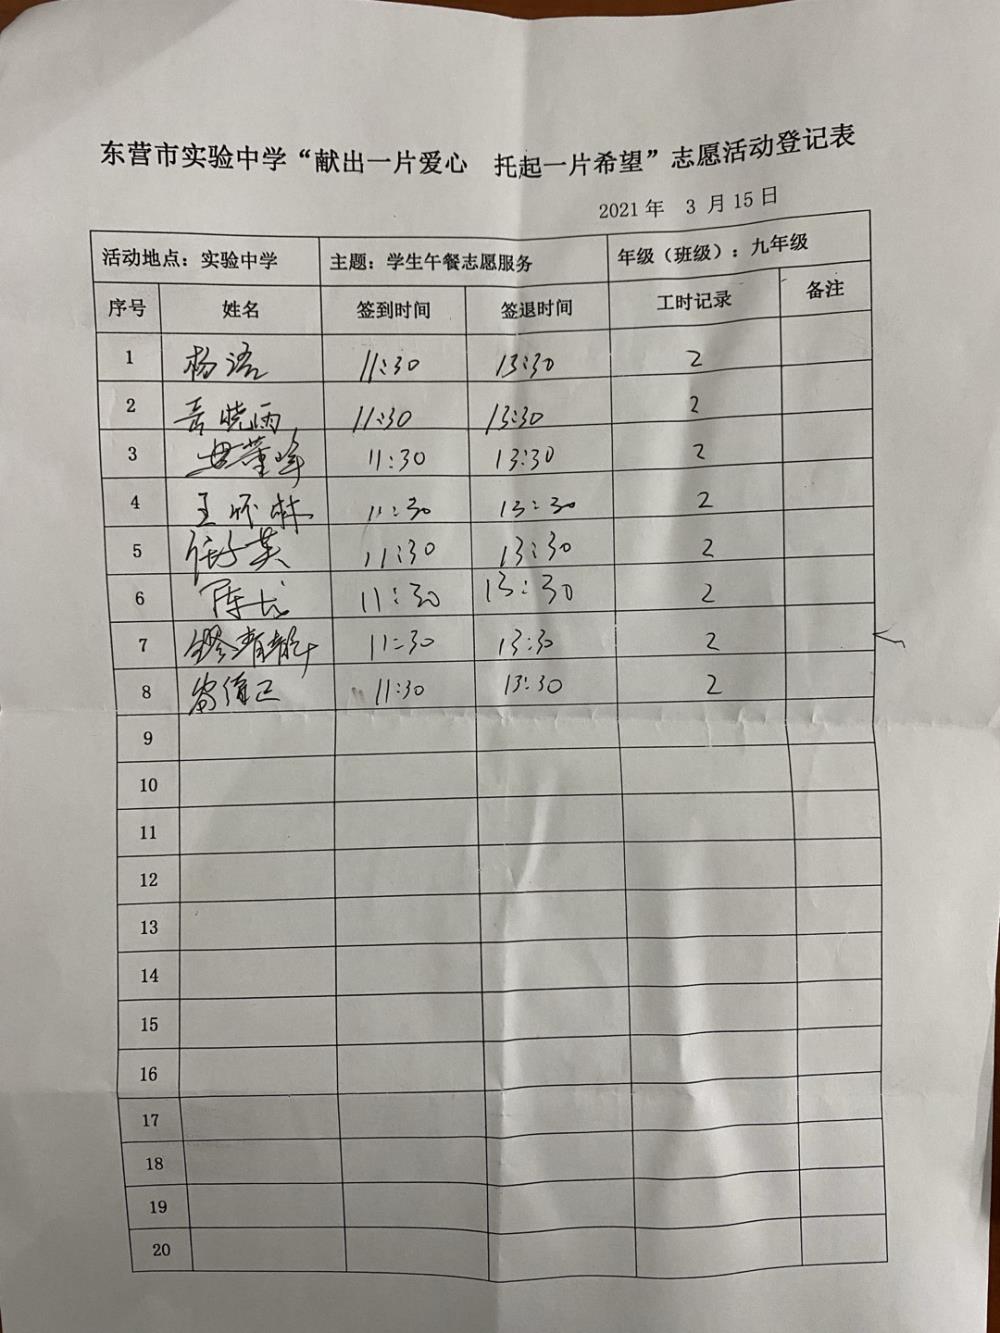 东营市实验中学“献出一片爱心 托起一片希望”志愿活动登记表
2021年 3月15日
活动地点：实验中学 主题：学生午餐志愿服务 年级（班级）：九年级
序号 姓名 签到时间 签退时间 工时记录 备注
1 杨洁 11:30 13:30 2
2 晓雨 11:30 13:30 2
3 11:30 13:30 2
4 王怀林 11:30 13:30 2
5 英 11:30 13:30 2
6 陈 11:30 13:30 2
7 11:30 13:30 2
8 11:30 13:30 2
9
10
11
12
13
14
15
16
17
18
19
20